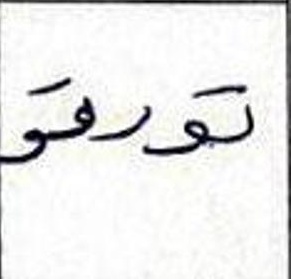 تورقو